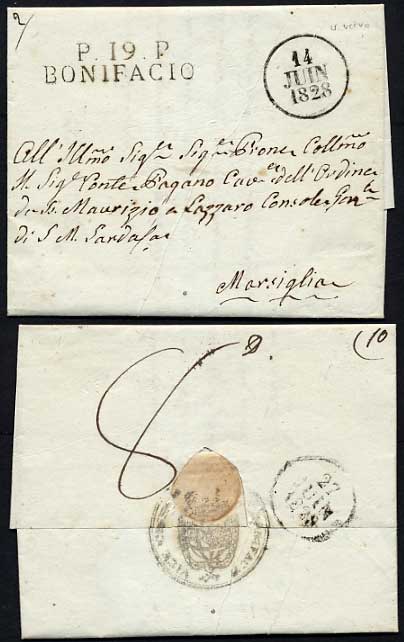 2/
P. 19. P
BONIFACIO
14
JUIN
1828
All' Illmo Sigr Sigr Prone Collmo
Il Sigr Conte Pagano Caver dell'Ordine
de St. Maurizio e Lazzaro Console Genle
di S. M. Sarda
Marsiglia
8
(10
27
JUIN